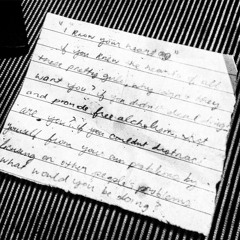 "I know your heart"
if you knew the wants of all
these pretty girls why don't they
want you? if you didn't deal drugs
and provide free alcohol
are you? if you couldn't distract
yourself from your own problems by
thinking on other people's problems
what would you be doing?